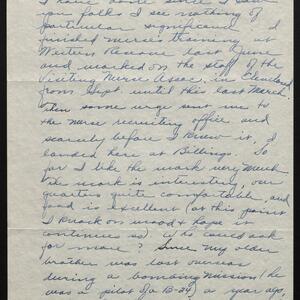 I have done since I saw
you folks I see nothing of
particular significance. I
finished nurse's training at
Western Reserve last June
and worked on the staff of the
Visiting Nurse Assoc. in Cleveland
from Sept. until this last March.
Then some urge sent me to
the nurse recruiting office and
scarcely before I knew it, I
landed here at Billings. So
far I like the work very much
the work is interesting, our
quarters quite comfortable, and
food is excellent (at this point
I knock on wood & hope it
continues so). Who could ask
for more? Since my older
brother was lost overseas
during a bombing mission (he
was a pilot of a B-24), a year ago,